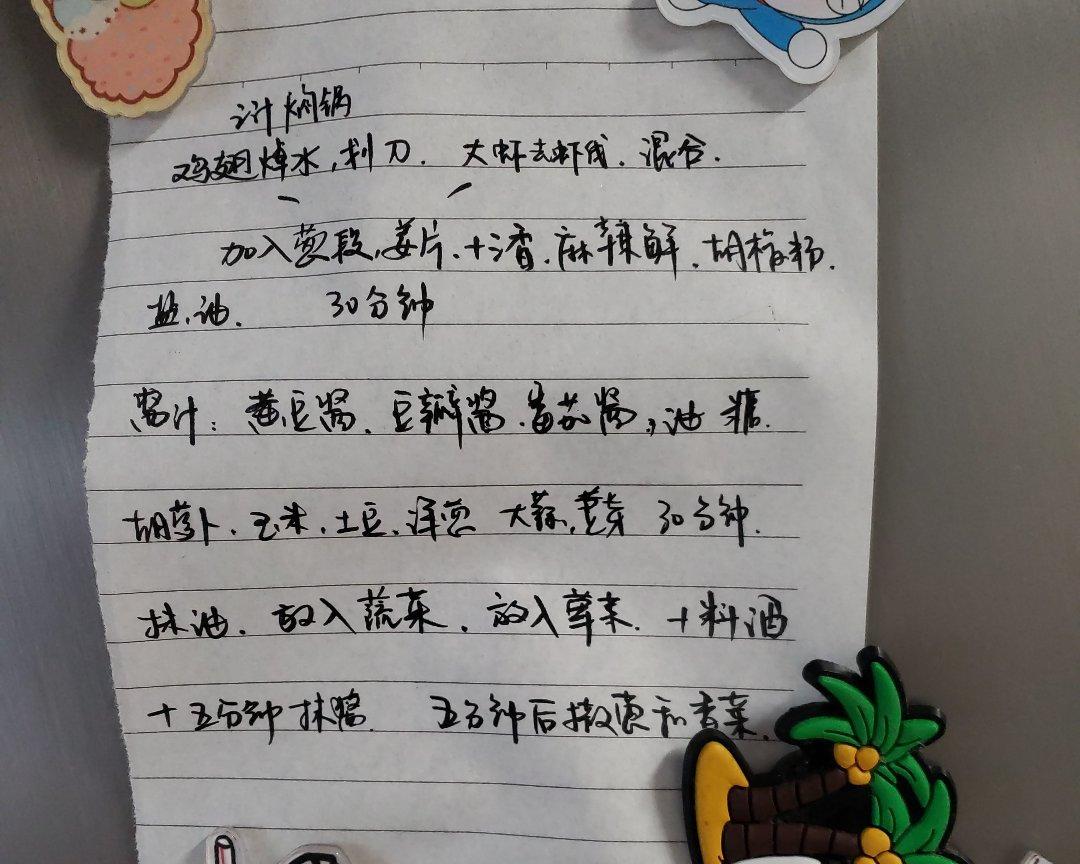 汁焖锅
鸡翅焯水,划刀. 大虾去虾线. 混合.
加入葱段,姜片.十三香.麻辣鲜.胡椒粉.
盐.油. 30分钟
酱汁: 黄豆酱. 豆瓣酱.番茄酱,油 糖.
胡萝卜.玉米.土豆.洋葱 大蒜, 30分钟.
抹油. 放入蔬菜. 放入荤菜. 十料酒
十五分钟抹酱 五分钟后撒葱和香菜.